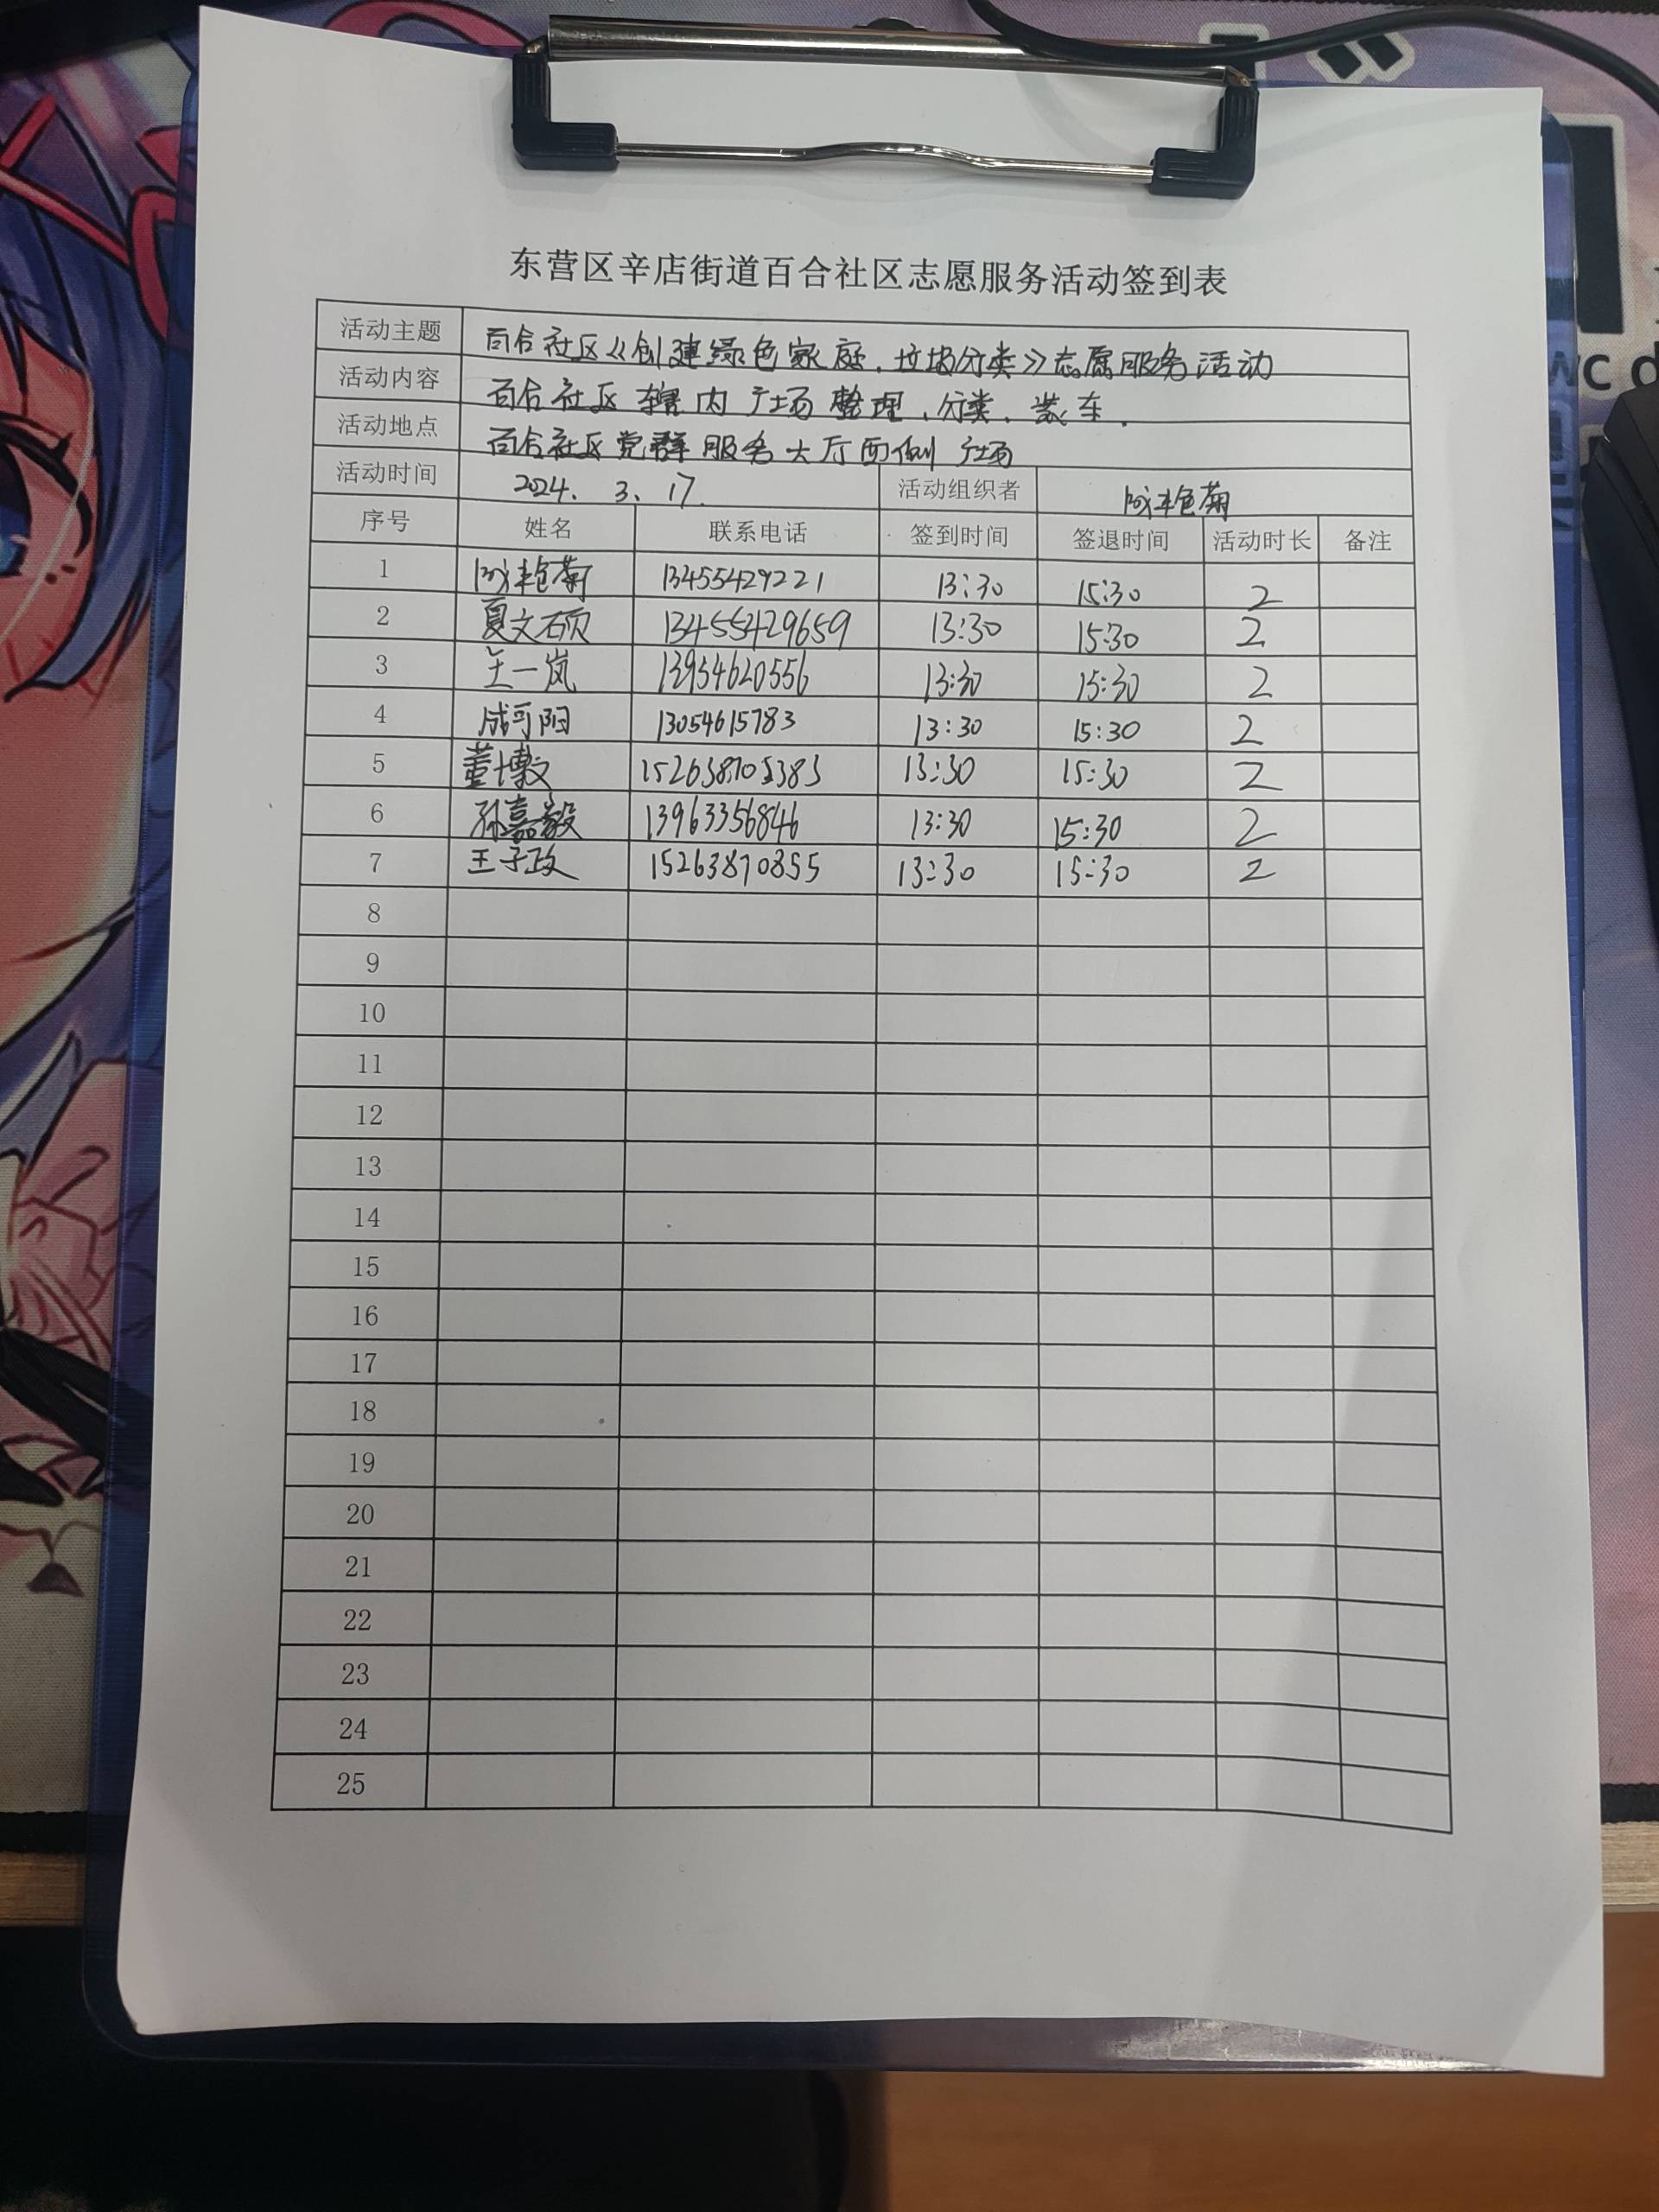 东营区辛店街道百合社区志愿服务活动签到表
活动主题 百合社区《创建绿色家庭，垃圾分类》志愿服务活动
活动内容 百合社区辖内广场整理、分类、装车.
活动地点 百合社区党群服务大厅西侧广场
活动时间 2024. 3. 17. 活动组织者 艳菊
序号 姓名 联系电话 签到时间 签退时间 活动时长 备注
1 艳菊 13455429221 13:30 15:30 2
2 夏文硕 13455429659 13:30 15:30 2
3 王一岚 13954620556 13:30 15:30 2
4 成可阳 13054615783 13:30 15:30 2
5 董博文 13:30 15:30 2
6 孙嘉毅 13963356846 13:30 15:30 2
7 王子政 15263870855 13:30 15:30 2
8
9
10
11
12
13
14
15
16
17
18
19
20
21
22
23
24
25